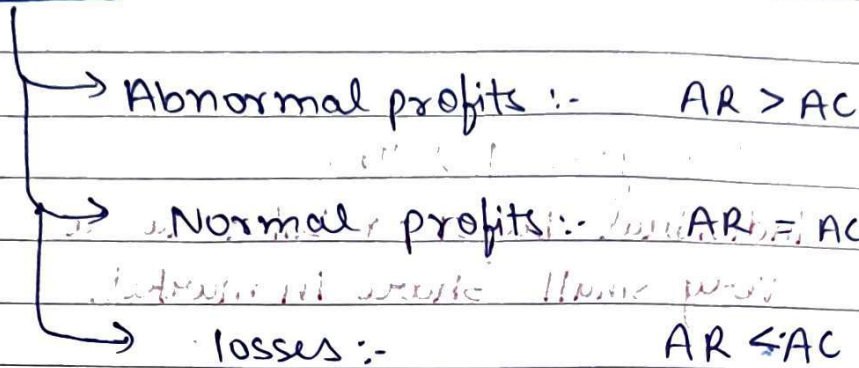 Abnormal profits :- AR > AC
Normal profits :- AR = AC
losses :- AR < AC